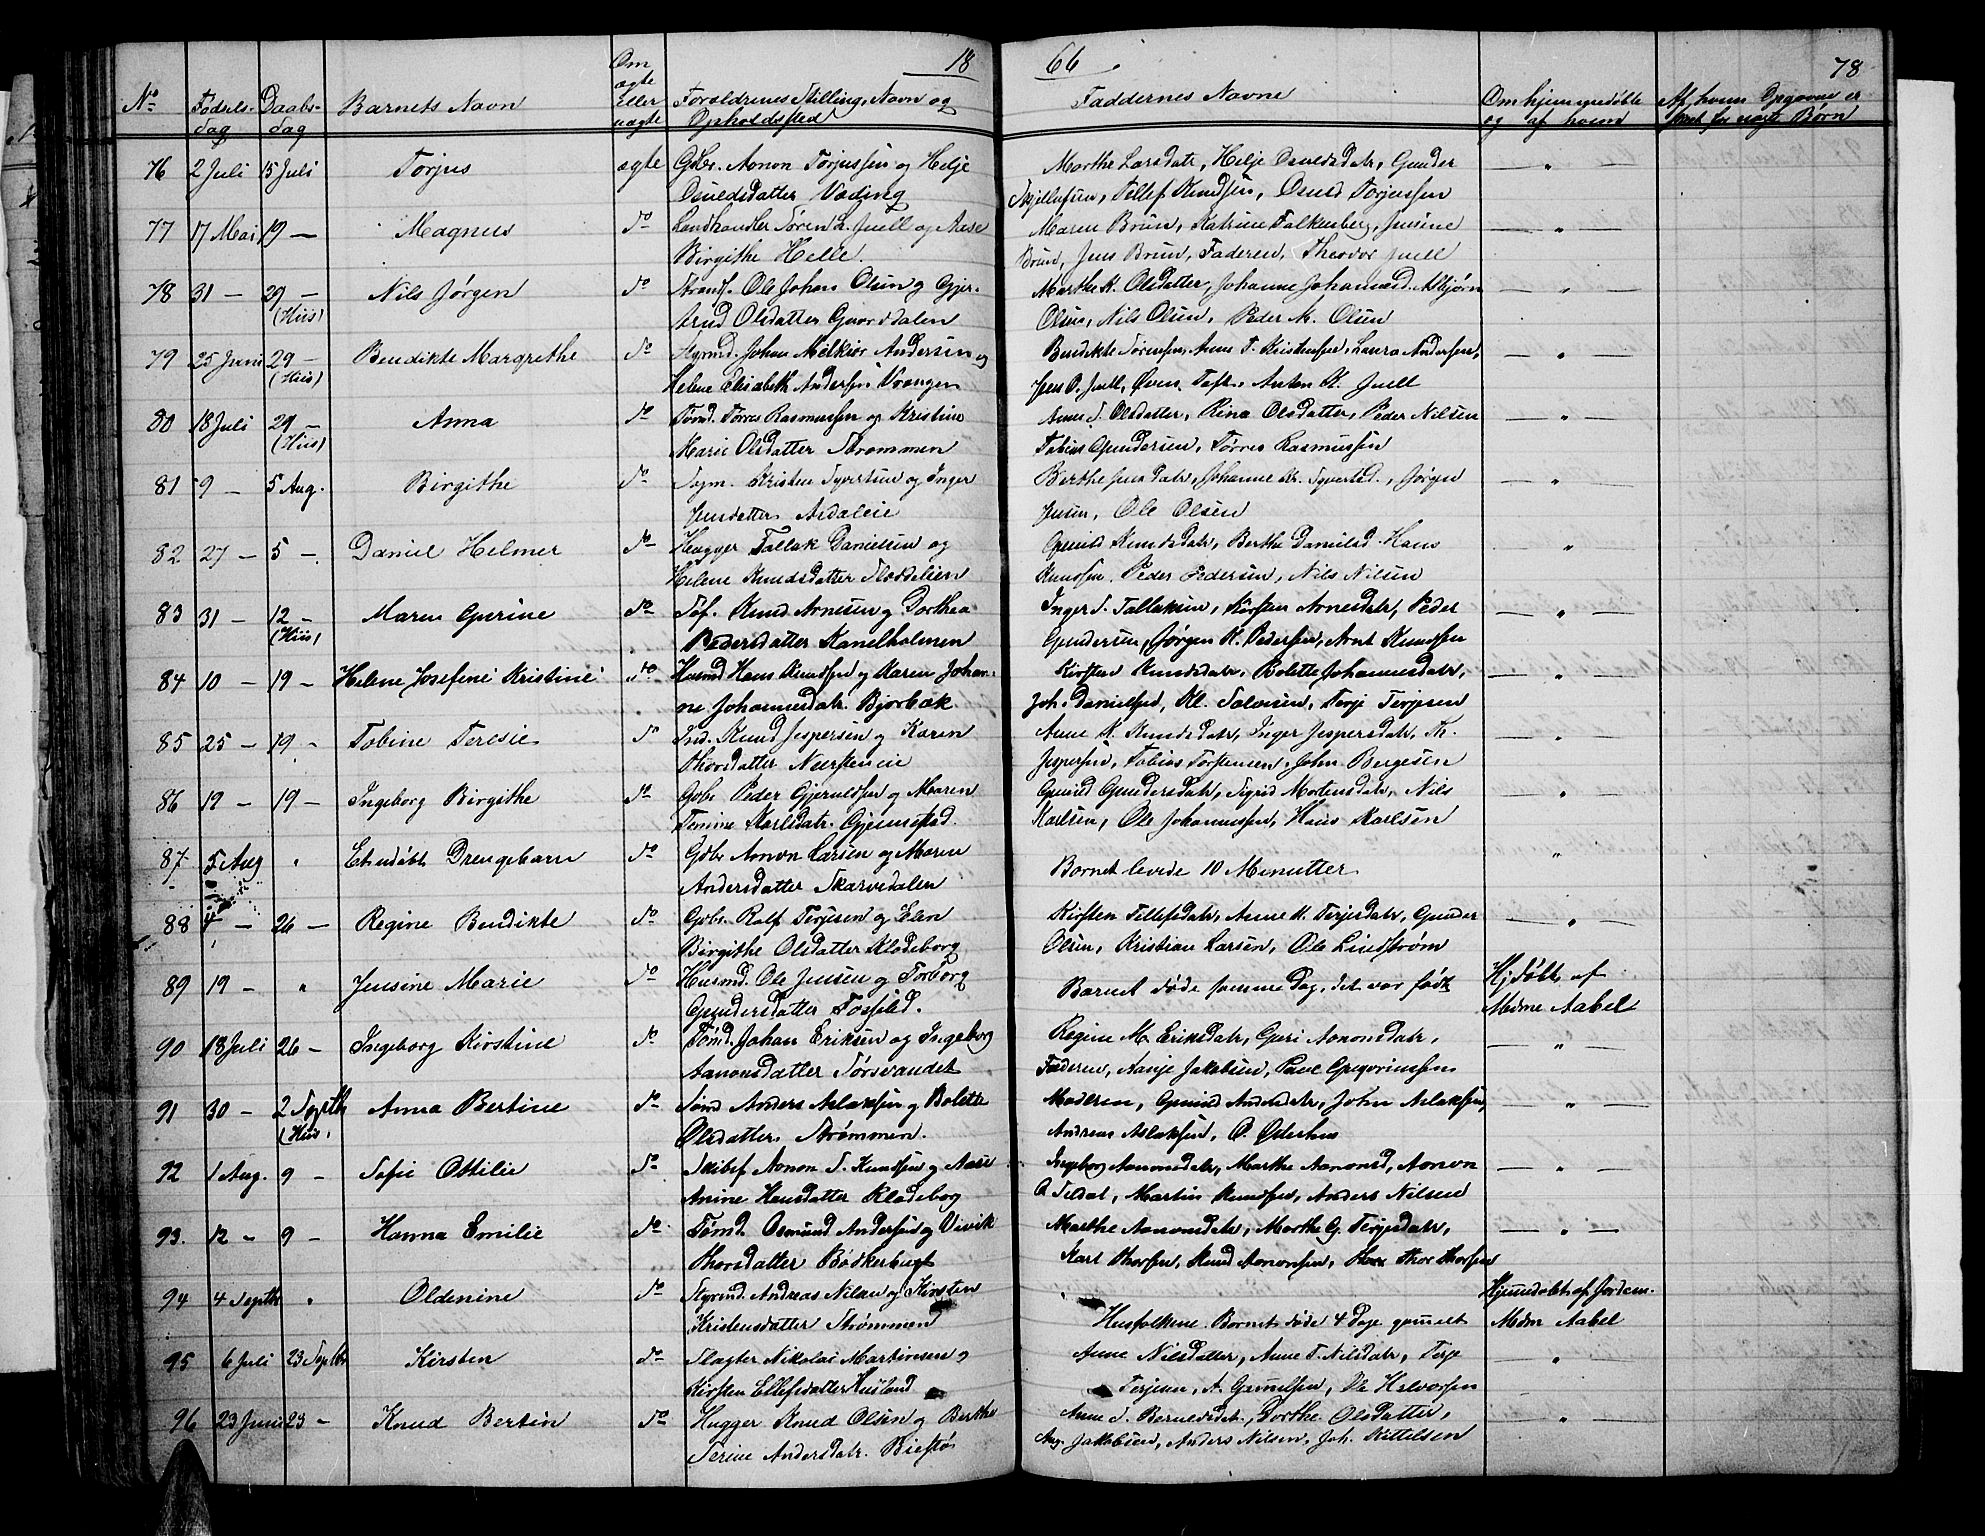 18
66
78
No
Fødsels-
dag
Daabs-
dag
Barnets Navn
Om
ægte
eller
uægte
Forældrenes Stilling, Navn og
Opholdssted
Faddernes Navne
Om hjemmedøbte
og af hvem
Af hvem Opgaven er
for uægte Børn
76 2 Juli 15 Juli Torjus ægte Gbr. Aanon Torjussen og Helje
Osuldsdatter Vading
Marthe Larsdatr, Helje Osuldsdatr, Gunder
Tellef Knudsen, Osuld Torjussen
77 17 Mai 19 — Magnus do Landhandler Søren L. Juell og Aase
Birgithe Helle.
Maren Brun, Katrine Falkenberg, Jensine
Brun, Jens Brun, Faderen, Theodor Juell
78 31 — 29 — (Hiis) Nils Jørgen do Ole Johan Olsen og Gjer-
trud Olsdatter
Marthe K. Olsdatter, Johanne Johannesd. Asbjørn
Olsen, Nils Olsen, Peder M. Olsen
79 25 Juni 29 — (Hiis) Bendikte Margrethe do Styrmd. Johan Melkior Andersen og
Helene Elisabeth Andersen Vrangen
Bendikte Sørensen, Anne T. Kristensen, Laura Andersen,
Jens P. Juell, Anton K. Juell
80 18 Juli 29 — (Hiis) Anna do Tømd. Tørres Rasmussen og Kristine
Marie Olsdatter Strømmen
Anne S. Olsdatter, Rina Olsdatter, Peder Nilsen
Tobias Gundersen, Tørres Rasmussen
81 9 — 5 Aug. Birgithe do Kristen Syvertsen og Inger
Jensdatter
Berthe Jensdatr, Johanne Kr. Syvertsd., Jørgen
Jensen, Ole Olsen
82 27 — 5 — Daniel Helmer do Hugger Tallak Danielsen og
Helene Knudsdatter Fløddelien
Gunild Knudsdatr, Berthe Danielsd. Hans
Knudsen, Peder Pedersen, Nils Nilsen
83 31 — 12 — (Hiis) Maren Gurine do Søf. Knud Arnesen og Dorthea
Pedersdatter Kanelholmen
Inger S. Tallaksen, Kirsten Arnesdatr, Peder
Gundersen, Jørgen K. Pedersen, Arnt Knudsen
84 10 — 19 — Helene Josefine Kristine do Husmd Hans Knudsen og Karen Johan-
ne Johannesdatr. Bjorbæk
Kirsten Knudsdatr, Bolette Johannesdatr,
Joh. Danielsen, Terje Terjesen
85 25 — 19 — Tobine Teresie do Knud Jespersen og Karen
Thorsdatter Neerstenene
Anne K. Knudsdatr, Inger Jespersdatr, Th.
Jespersen, Tobias Torstensen, John Bergesen
86 12 — 19 — Ingeborg Birgithe do Gbr Peder Gjeruldsen og Maren
Tomine Karlsdatr. Gjennestad.
Gunild Gundersdatr, Sigrid Mortensdatr, Nils
Karlsen, Ole Johannessen, Hans Karlsen
87 5 Aug " Et udøbt Drengebarn do Gbr Aanon Larsen og Maren
Andersdatter Skarvedalen
Barnet levede 10 Minutter
88 4 — 26 — Regine Bendikte do Gbr. Rolf Terjesen og Elen
Birgithe Olsdatter Klodeborg
Kirsten Tellefsdatr, Anne K. Terjesdatr, Gunder
Olsen, Kristian Larsen, Ole Lindstrøm
89 19 — " Jensine Marie do Husmd. Ole Jensen og Torborg
Gundersdatter Fosstad.
Barnet døde samme Dag, det var født
Hj.døbt af
Mdme Aabel
90 18 Juli 26 — Ingeborg Kirstine do Tømd. Johan Eriksen og Ingeborg
Aanonsdatter Torsvandet
Regine M. Eriksdatr, Guri Aanonsdatr,
Faderen, Aanje Jakobsen, Paul Gregoriussen
91 30 — 2 Septbr (Hiis) Anna Bertine do Tømd Anders Aslaksen og Bolette
Olsdatter Strømmen.
Moderen, Gunild Andersdatr, John Aslaksen,
Andreas Aslaksen, O. Osterhus
92 1 Aug. 9 — Sofie Ottilie do Skibsf Aanon S. Knudsen og Aase
Anine Hansdatter Klodeborg
Ingeborg Aanonsdatr, Marthe Aanonsd, Aanon
O. Martin Knudsen, Anders Nilsen
93. 12 — 9 — Hanna Emilie do Tømd. Osmund Andersen og Vivik
Thorsdatter Bødkerbugt
Marthe Aanonsdatr, Marthe G. Terjesdatr,
Karl Thorsen, Knud Aanonsen, Thor Thorsen
94 4 Septbr " Oldenine do Styrmd. Andreas Nilsen og Kirsten
Kristensdatter Strømmen
Husfolkene. Barnet døde 4 Dage gammelt
Hjemdøbt af Jordem.
Mdm Aabel
95 6 Juli 23 Septbr Kirsten do Slagter Nikolai Martinsen og
Kirsten Ellefsdatter Huusland
Anne Nilsdatter, Anne T. Nilsdatr, Terje
Terjesen, A. Gunnelsen, Ole Halvorsen
96 23 Juni 23 — Knud Bertin do Hugger Knud Olsen og Berthe
Terine Andersdatr. Biestø
Anne S. Dorthe Olsdatter,
Aug. Jakobsen, Anders Nilsen, Joh. Kittelsen